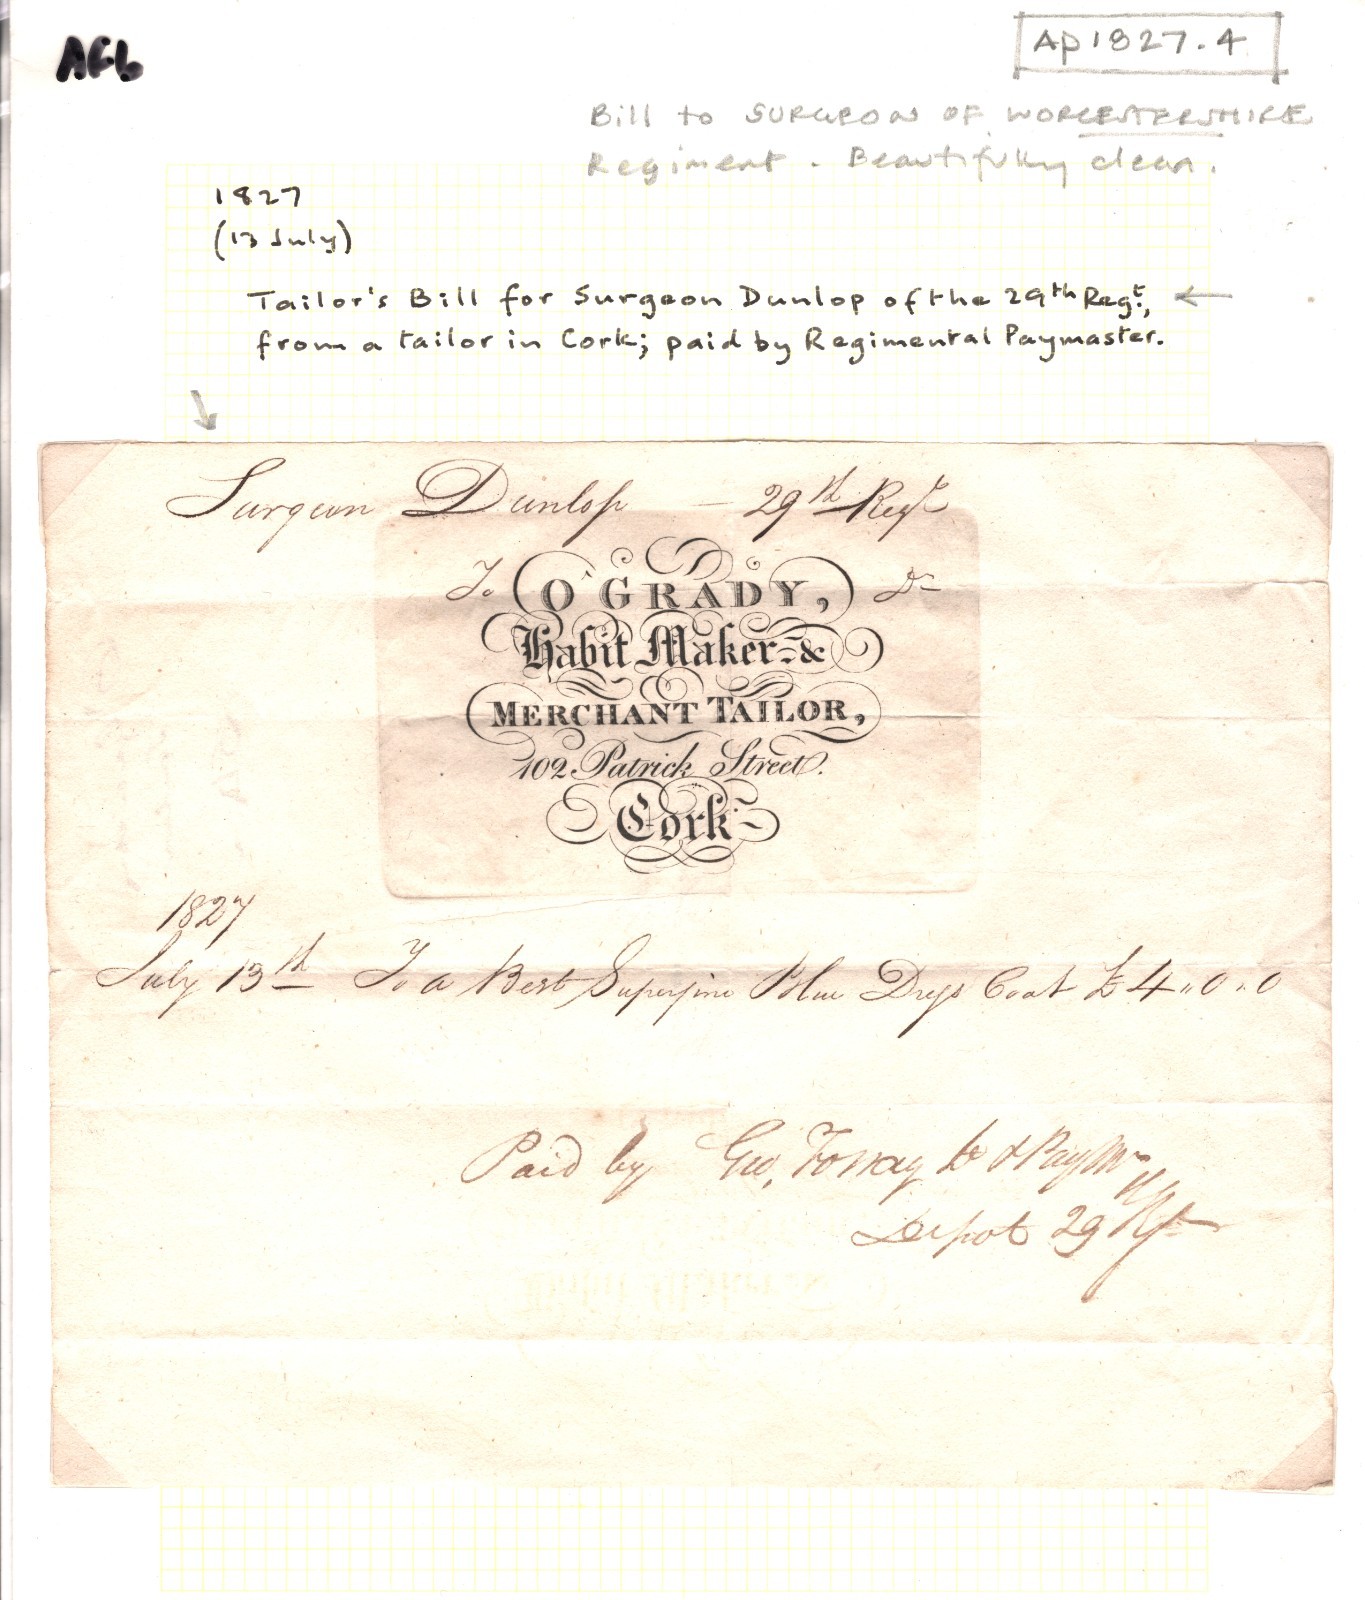 AE6
AP1827.4
Bill to SURGEON OF WORCESTERSHIRE
Regiment. Beautifully clean.
1827
(13 July)
Tailor's Bill for Surgeon Dunlop of the 29th Regt,
from a tailor in Cork; paid by Regimental Paymaster.
Surgeon Dunlop — 29th Regt
To O'GRADY, Dr
Habit Maker & 
MERCHANT TAILOR,
102 Patrick Street.
Cork
1827
July 13th To a Best Superfine Blue Dress Coat £4"0"0
Paid by Geo, PayMr
Depot 29 Rgt